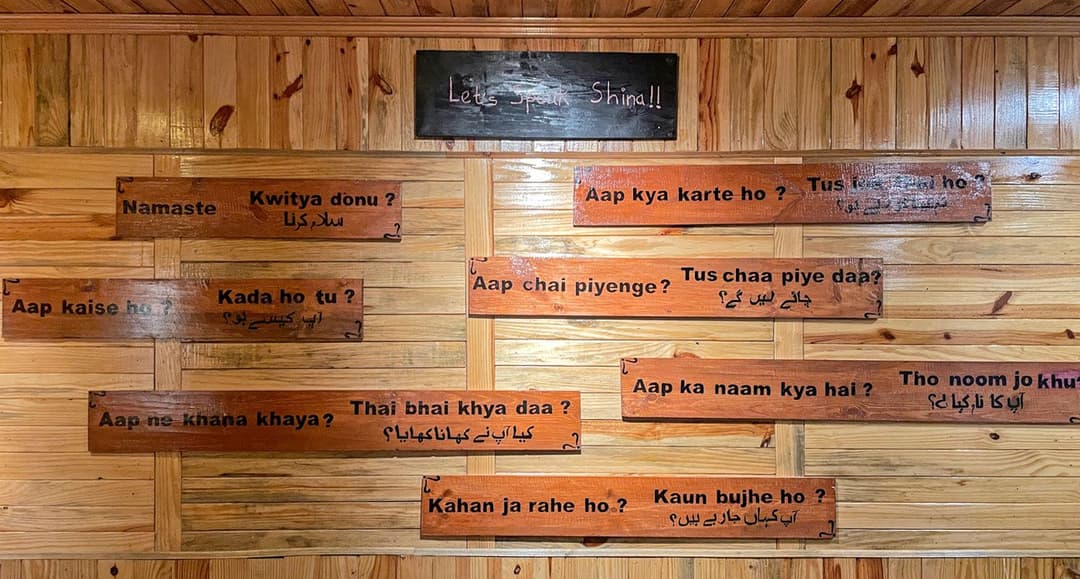 Let's Speak Shina!!
Namaste
Kwitya donu ?
سلام کرنا
Aap kaise ho ?
Kada ho tu ?
آپ کیسے ہو؟
Aap ne khana khaya?
Thai bhai khya daa ?
کیا آپ نے کھانا کھایا؟
Aap kya karte ho ?
Tus ho ?
Aap chai piyenge?
Tus chaa piye daa?
چائے لیں گے؟
Aap ka naam kya hai ?
Tho noom jo khu?
آپ کا نام کیا ہے؟
Kahan ja rahe ho ?
Kaun bujhe ho ?
آپ کہاں جارہے ہیں؟